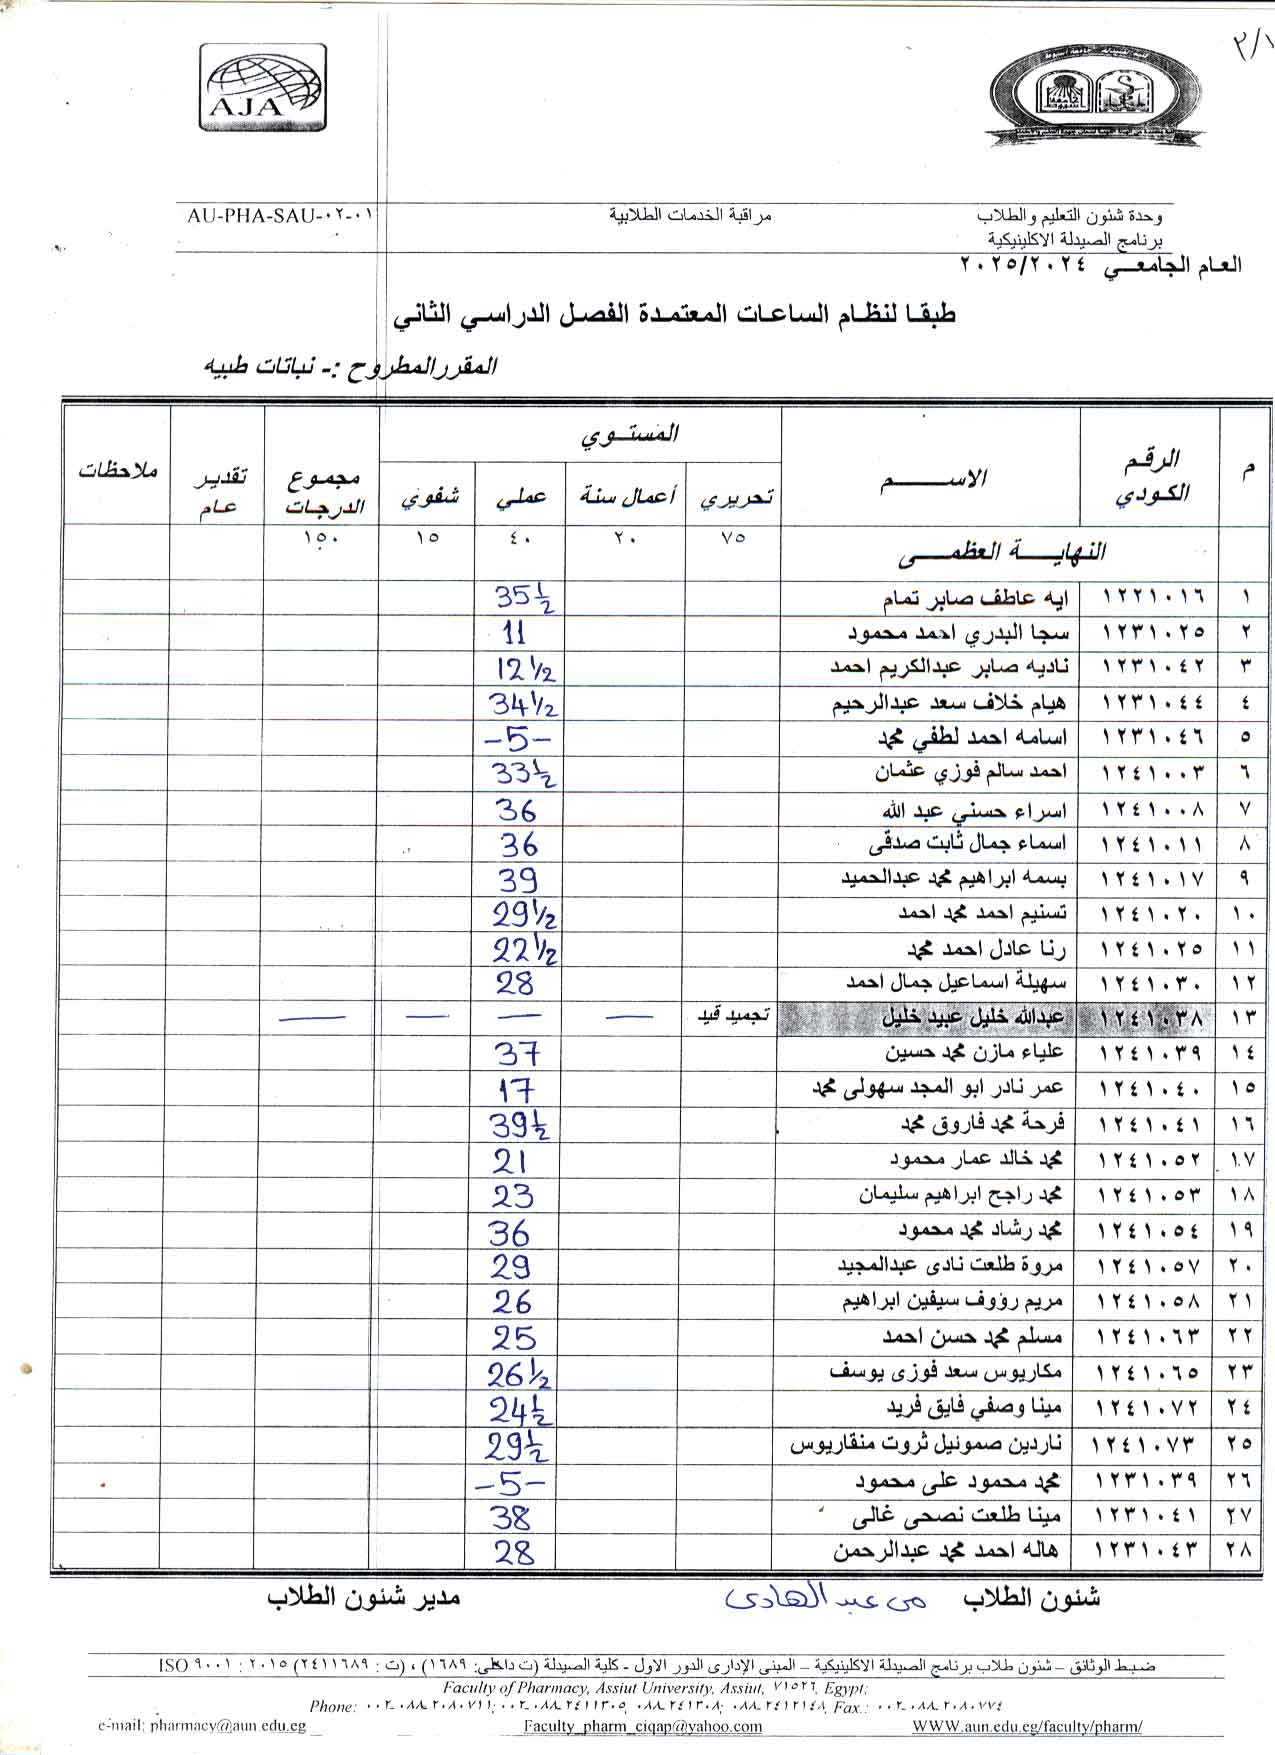 ٢/١
AJA
وحدة شئون التعليم والطلاب مراقبة الخدمات الطلابية AU-PHA-SAU-٠٢-٠١
برنامج الصيدلة الاكلينيكية
العام الجامعي ٢٠٢٥/٢٠٢٤
طبقا لنظام الساعات المعتمدة الفصل الدراسي الثاني
المقرر المطروح :- نباتات طبيه
م الرقم الكودي الاســـم المستوي مجموع الدرجات تقدير عام ملاحظات
تحريري أعمال سنة عملي شفوي
النهايــة العظمــى ٧٥ ٢٠ ٤٠ ١٥ ١٥٠
١ ١٢٢١٠١٦ ايه عاطف صابر تمام 35½
٢ ١٢٣١٠٢٥ سجا البدري احمد محمود 11
٣ ١٢٣١٠٤٢ ناديه صابر عبدالكريم احمد 12½
٤ ١٢٣١٠٤٤ هيام خلاف سعد عبدالرحيم 34½
٥ ١٢٣١٠٤٦ اسامه احمد لطفي محمد -5-
٦ ١٢٤١٠٠٣ احمد سالم فوزي عثمان 33½
٧ ١٢٤١٠٠٨ اسراء حسني عبد الله 36
٨ ١٢٤١٠١١ اسماء جمال ثابت صدقى 36
٩ ١٢٤١٠١٧ بسمه ابراهيم محمد عبدالحميد 39
١٠ ١٢٤١٠٢٠ تسنيم احمد محمد احمد 29½
١١ ١٢٤١٠٢٥ رنا عادل احمد محمد 22½
١٢ ١٢٤١٠٣٠ سهيلة اسماعيل جمال احمد 28
١٣ ١٢٤١٠٣٨ عبدالله خليل عبيد خليل تجميد قيد — — — —
١٤ ١٢٤١٠٣٩ علياء مازن محمد حسين 37
١٥ ١٢٤١٠٤٠ عمر نادر ابو المجد سهولى محمد 17
١٦ ١٢٤١٠٤١ فرحة محمد فاروق محمد 39½
١٧ ١٢٤١٠٥٢ محمد خالد عمار محمود 21
١٨ ١٢٤١٠٥٣ محمد راجح ابراهيم سليمان 23
١٩ ١٢٤١٠٥٤ محمد رشاد محمد محمود 36
٢٠ ١٢٤١٠٥٧ مروة طلعت نادى عبدالمجيد 29
٢١ ١٢٤١٠٥٨ مريم رؤوف سيفين ابراهيم 26
٢٢ ١٢٤١٠٦٣ مسلم محمد حسن احمد 25
٢٣ ١٢٤١٠٦٥ مكاريوس سعد فوزى يوسف 26½
٢٤ ١٢٤١٠٧٢ مينا وصفي فايق فريد 24½
٢٥ ١٢٤١٠٧٣ ناردين صموئيل ثروت منقاريوس 29½
٢٦ ١٢٣١٠٣٩ محمد محمود على محمود -5-
٢٧ ١٢٣١٠٤١ مينا طلعت نصحى غالى 38
٢٨ ١٢٣١٠٤٣ هاله احمد محمد عبدالرحمن 28
شئون الطلاب منى عبد الهادى مدير شئون الطلاب
ضبط الوثائق – شئون طلاب برنامج الصيدلة الاكلينيكية – المبنى الإدارى الدور الاول - كلية الصيدلة (ت داخلى: ١٦٨٩) ، (ت : ٢٤١١٦٨٩) ISO ٩٠٠١ : ٢٠١٥
Faculty of Pharmacy, Assiut University, Assiut, ٧١٥٢٦, Egypt;
Phone: ٠٠٢٠٨٨٢٠٨٠٧١١; ٠٠٢٠٨٨٢٤١١٣٠٥, ٠٨٨٢٤١٣٠٨; ٠٨٨٢٤١٢١٤٨, Fax.: ٠٠٢٠٨٨٢٠٨٠٧٧٤
e-mail: pharmacy@aun.edu.eg Faculty_pharm_ciqap@yahoo.com WWW.aun.edu.eg/faculty/pharm/